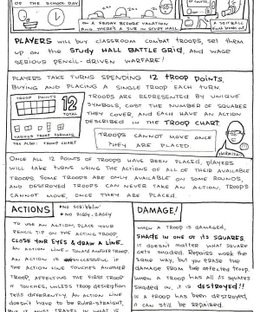 OF THE SCHOOL DAY
ON A FRIDAY BEFORE VACATION
AND THERE'S A SUB IN STUDY HALL
A SPITBALL
PLAYERS will buy CLASSROOM COMBAT TROOPS, SET THEM
UP ON THE STUDY HALL BATTLE GRID, AND WAGE
SERIOUS PENCIL-DRIVEN WARFARE!
PLAYERS TAKE TURNS SPENDING 12 TROOP POINTS,
BUYING AND PLACING A SINGLE TROOP EACH TURN.
TROOP POINTS
12
TOTAL
TROOPS ARE REPRESENTED BY UNIQUE
SYMBOLS, COST THE NUMBER OF SQUARES
THEY COVER, AND EACH HAVE AN ACTION
DESCRIBED IN THE TROOP CHART
SEE ALSO: TROOP CHART
TROOPS CANNOT MOVE ONCE
THEY ARE PLACED.
ONCE ALL 12 POINTS OF TROOPS HAVE BEEN PLACED, PLAYERS
WILL TAKE TURNS USING THE ACTIONS OF ALL OF THEIR AVAILABLE
TROOPS. SOME TROOPS ARE ONLY AVAILABLE ON CERTAIN ROUNDS,
AND DESTROYED TROOPS CAN NEVER TAKE AN ACTION. TROOPS
CANNOT MOVE, ONCE THEY ARE PLACED.
ACTIONS
TO USE AN ACTION, PLACE YOUR
PENCIL TIP ON THE ACTING TROOP,
CLOSE YOUR EYES & DRAW A LINE.
AN ACTION IS SUCCESSFUL IF
THE ACTION LINE TOUCHES ANOTHER
TROOP, AFFECTING THE FIRST TROOP
IT TOUCHES, UNLESS TROOP DESCRIPTION
SAYS DIFFERENTLY. AN ACTION LINE
DOESN'T HAVE TO BE RULER-STRAIGHT,
BUT IT MUST TRAVEL IN WHAT IS
DAMAGE!
WHEN A TROOP IS DAMAGED,
SHADE IN ONE OF ITS SQUARES.
IT DOESN'T MATTER WHAT SQUARE
GETS SHADED. REPAIRS WORK THE
SAME WAY, BUT ERASE THE
DAMAGE FROM THE AFFECTED TROOP.
WHEN A TROOP HAS ALL ITS SQUARES
SHADED IN, IT IS DESTROYED!!
IF A TROOP HAS BEEN DESTROYED,
CAN STILL BE REPAIRED.